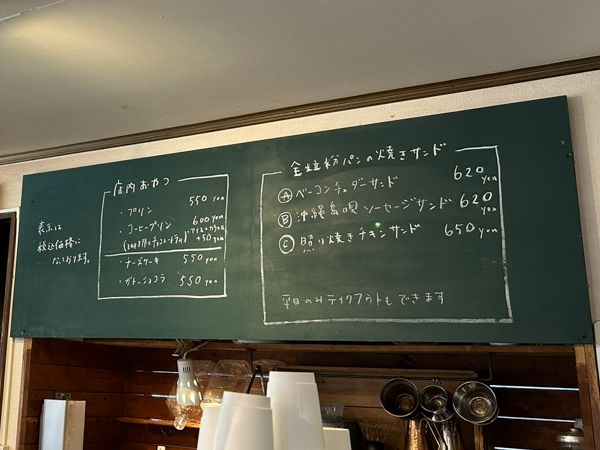 表示は
税込価格に
なっております。
店内おやつ
・プリン 550 yen
・コーヒープリン 600 yen
+50 yen
・チーズケーキ 550 yen
・ガトーショコラ 550 yen
全粒粉パンの焼きサンド
Ⓐ ベーコンチェダーサンド 620 yen
Ⓑ 沖縄島唄ソーセージサンド 620 yen
Ⓒ 照り焼きチキンサンド 650 yen
平日のみテイクアウトもできます